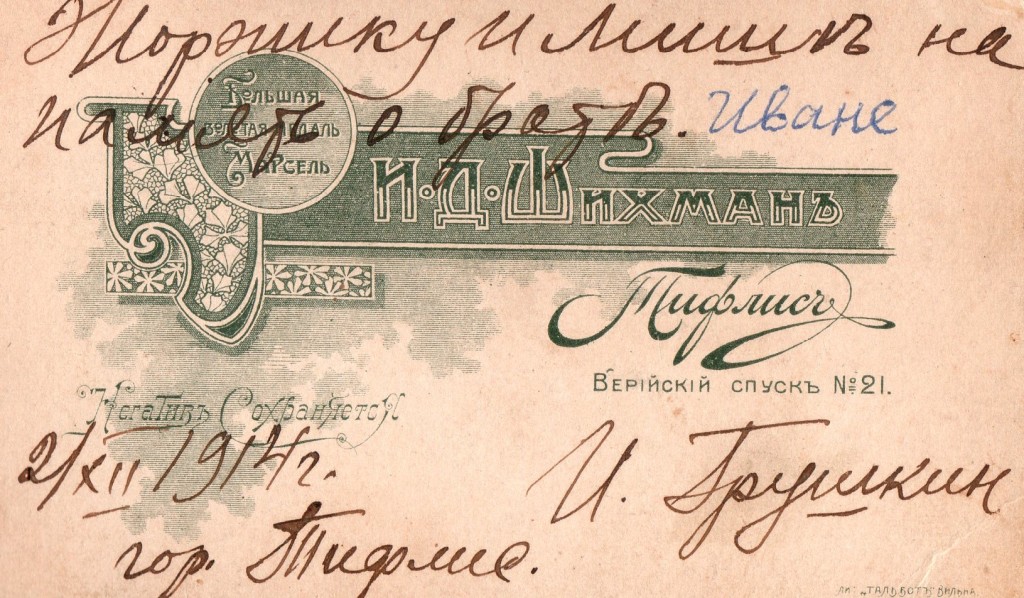 Жоржику и Мишѣ на
память о братѣ. Иване
Большая
золотая медаль
Марсель
И·Д·Шихманъ
Тифлисъ
Верійскій спускъ №21.
Негативъ Сохраняется
2/XII 1914 г.
И. Грушкин
гор. Тифлис.
ЛИТ. „ТАЛЬБОТЪ" ВИЛЬНА.